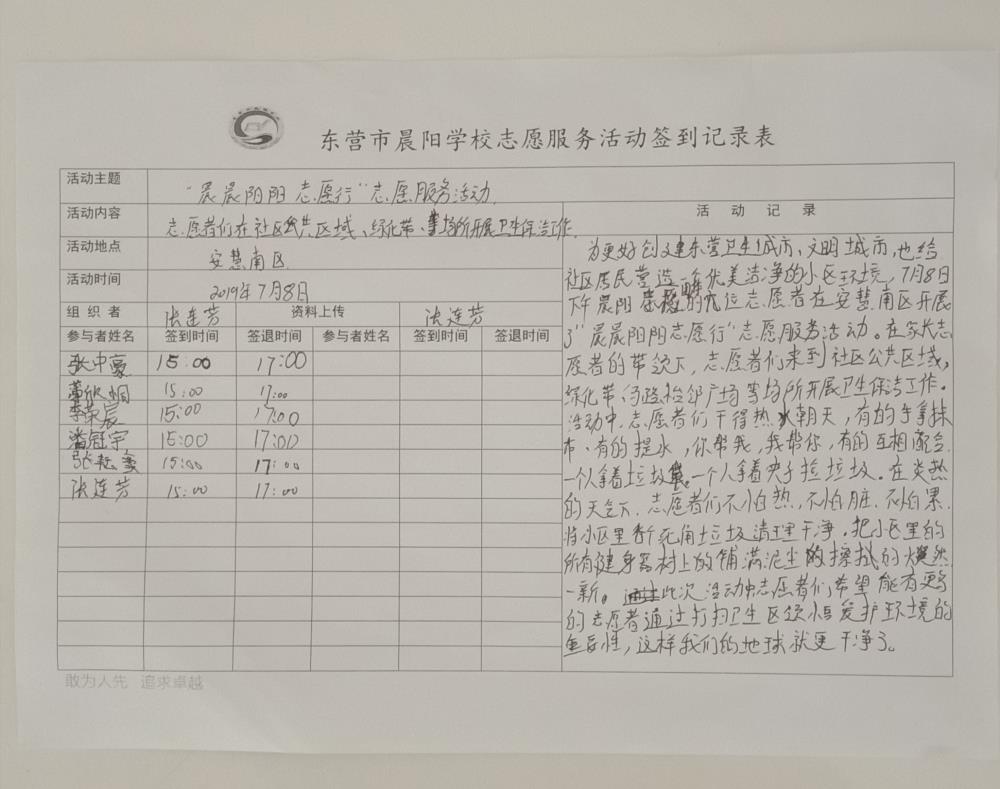 东营市晨阳学校志愿服务活动签到记录表
活动主题 "晨晨阳阳志愿行"志愿服务活动
活动内容 志愿者们在社区公共区域、绿化带等场所开展卫生保洁工作
活动地点 安慧南区
活动时间 2019年7月8日
组织者 张连芳 资料上传 张连芳
参与者姓名 签到时间 签退时间 参与者姓名 签到时间 签退时间
张中豪 15:00 17:00
15:00 17:00
李荣宸 15:00 17:00
潘冠宇 15:00 17:00
张赵豪 15:00 17:00
张连芳 15:00 17:00
活动记录
为更好创建东营卫生城市、文明城市,也给
社区居民营造一个优美洁净的小区环境,7月8日
下午晨阳学校的几位志愿者在安慧南区开展
了"晨晨阳阳志愿行"志愿服务活动。在家长志
愿者的带领下,志愿者们来到社区公共区域,
绿化带、广场等场所开展卫生保洁工作。
活动中,志愿者们干得热火朝天,有的手拿抹
布、有的提水,你帮我,我帮你,有的互相配合
一个人拿着垃圾袋,一个人拿着夹子捡垃圾。在炎热
的天气下,志愿者们不怕热,不怕脏,不怕累
将小区里卫生死角垃圾清理干净,把小区里的
所有健身器材上的铺满泥尘擦拭的焕然
一新。通过此次活动中志愿者们希望能有更多
的志愿者通过打扫卫生区领悟爱护环境的
重要性,这样我们的地球就更干净了。
敢为人先 追求卓越